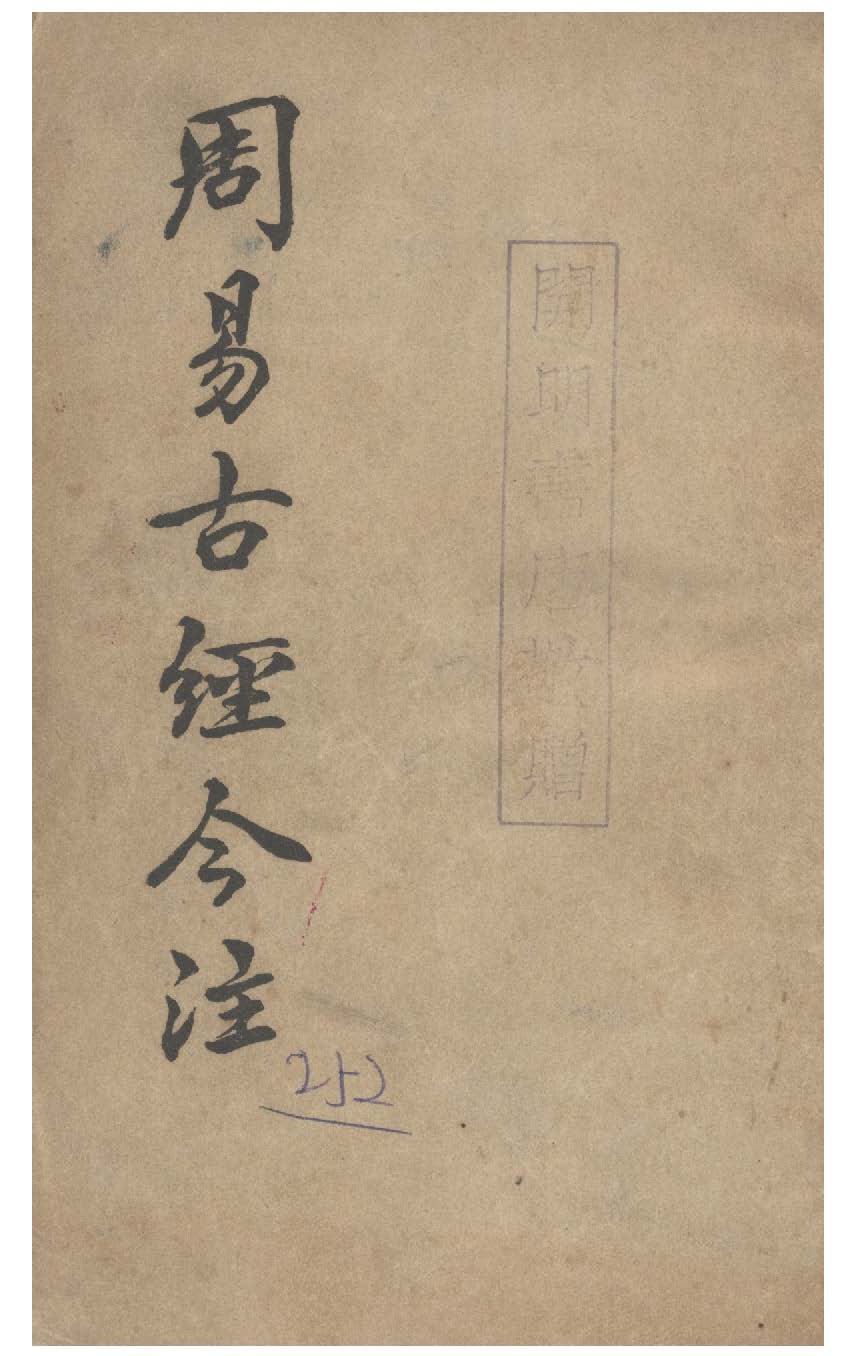 開明書店敬贈
周易古經今注
252